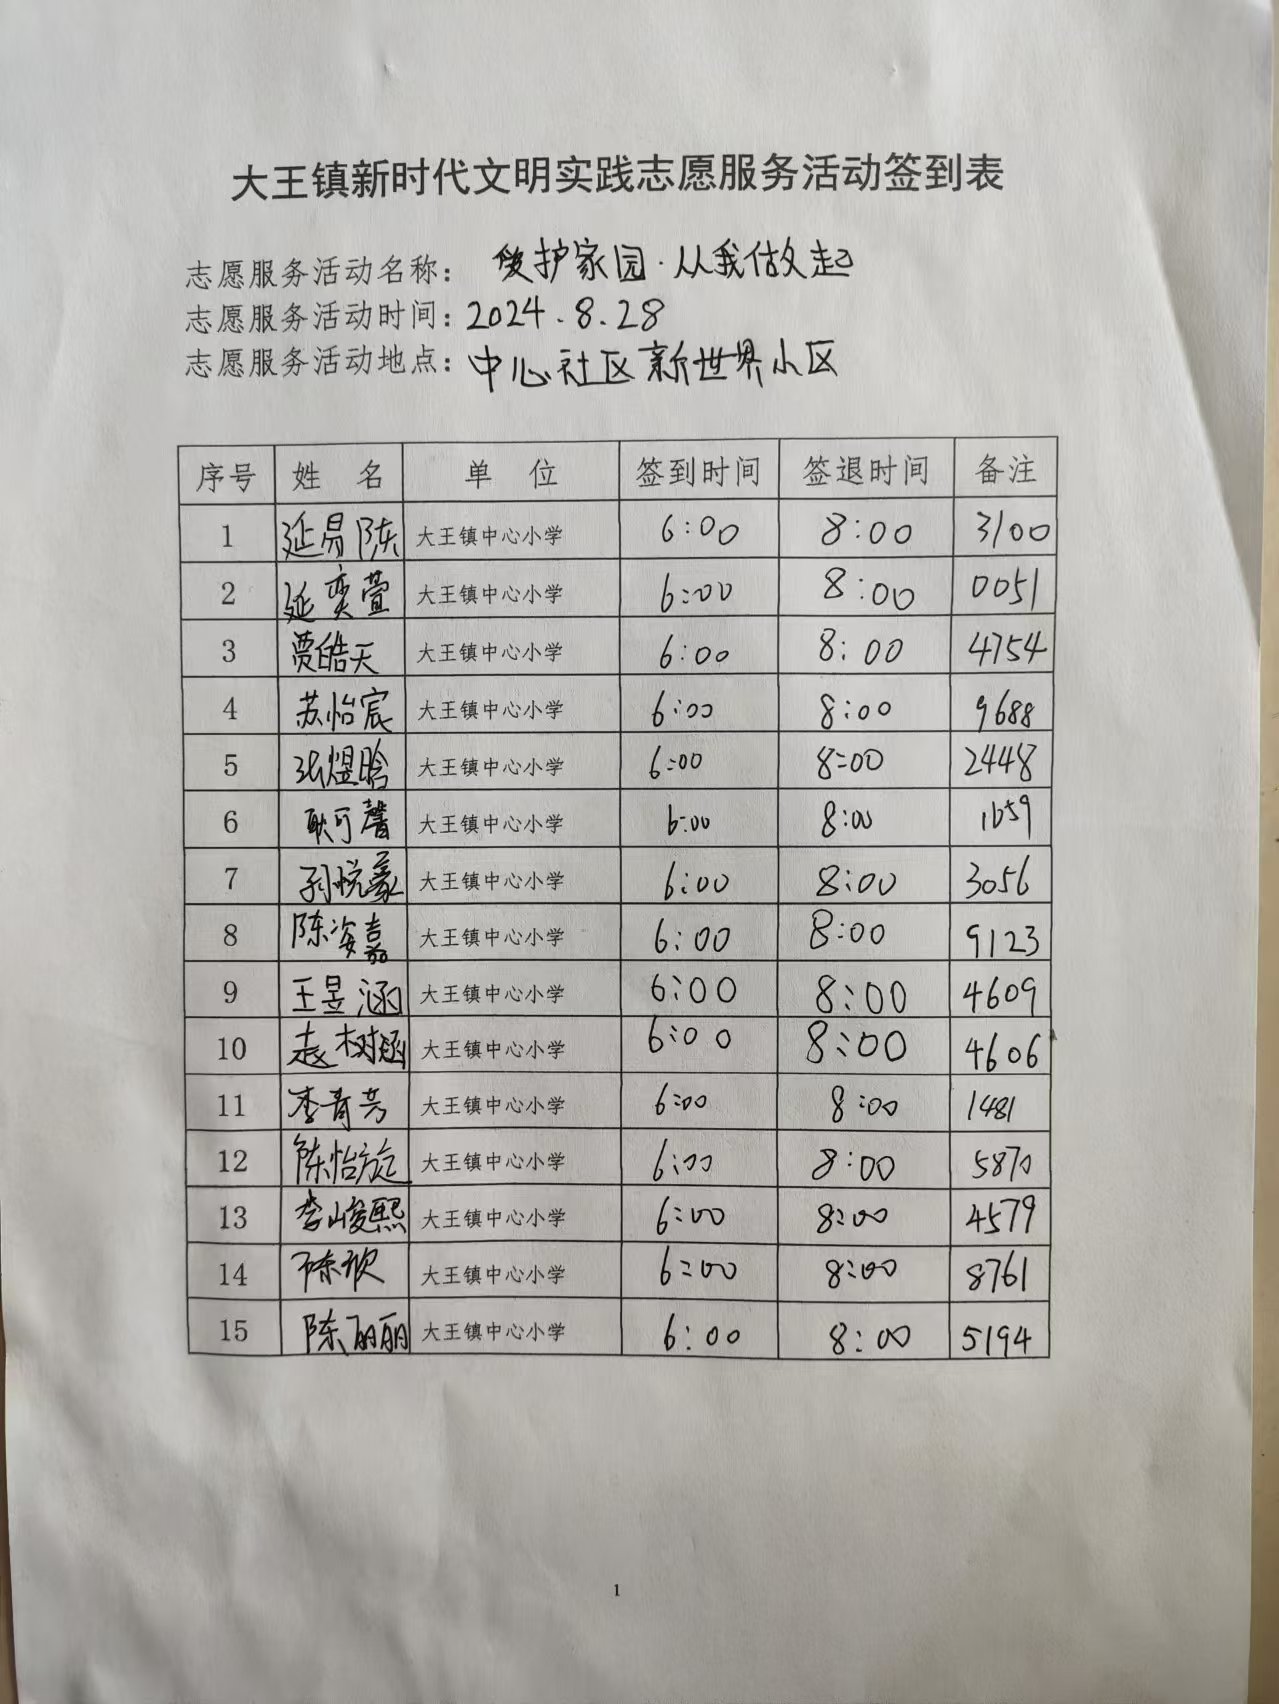 大王镇新时代文明实践志愿服务活动签到表
志愿服务活动名称： 爱护家园·从我做起
志愿服务活动时间：2024.8.28
志愿服务活动地点：中心社区新世界小区
序号 姓 名 单 位 签到时间 签退时间 备注
1 延易陈 大王镇中心小学 6:00 8:00 3100
2 延奕萱 大王镇中心小学 6:00 8:00 0051
3 贾皓天 大王镇中心小学 6:00 8:00 4754
4 苏怡宸 大王镇中心小学 6:00 8:00 9688
5 张煜晗 大王镇中心小学 6:00 8:00 2448
6 耿可馨 大王镇中心小学 6:00 8:00 1659
7 孙悦豪 大王镇中心小学 6:00 8:00 3056
8 陈姿嘉 大王镇中心小学 6:00 8:00 9123
9 王昱涵 大王镇中心小学 6:00 8:00 4609
10 大王镇中心小学 6:00 8:00 4606
11 李青芳 大王镇中心小学 6:00 8:00 1481
12 陈怡旋 大王镇中心小学 6:00 8:00 5870
13 李峻熙 大王镇中心小学 6:00 8:00 4579
14 陈欣 大王镇中心小学 6:00 8:00 8761
15 陈丽丽 大王镇中心小学 6:00 8:00 5194
1